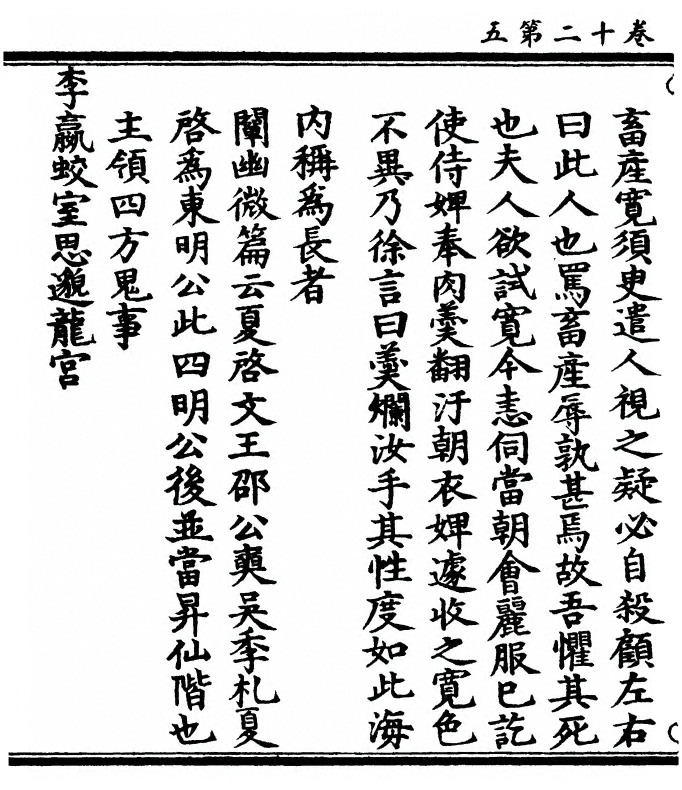 卷十二第五
畜產寬須臾遣人視之疑必自殺顧左右
曰此人也罵畜產辱孰甚焉故吾懼其死
也夫人欲試寬令恚伺當朝會麗服已訖
使侍婢奉肉羹翻汙朝衣婢遽收之寬色
不異乃徐言曰羹爛汝手其性度如此海
內稱為長者
闡幽微篇云夏啓文王邵公奭吳季札夏
啓為東明公此四明公後並當昇仙階也
主領四方鬼事
李嬴蛟室思邈龍宮